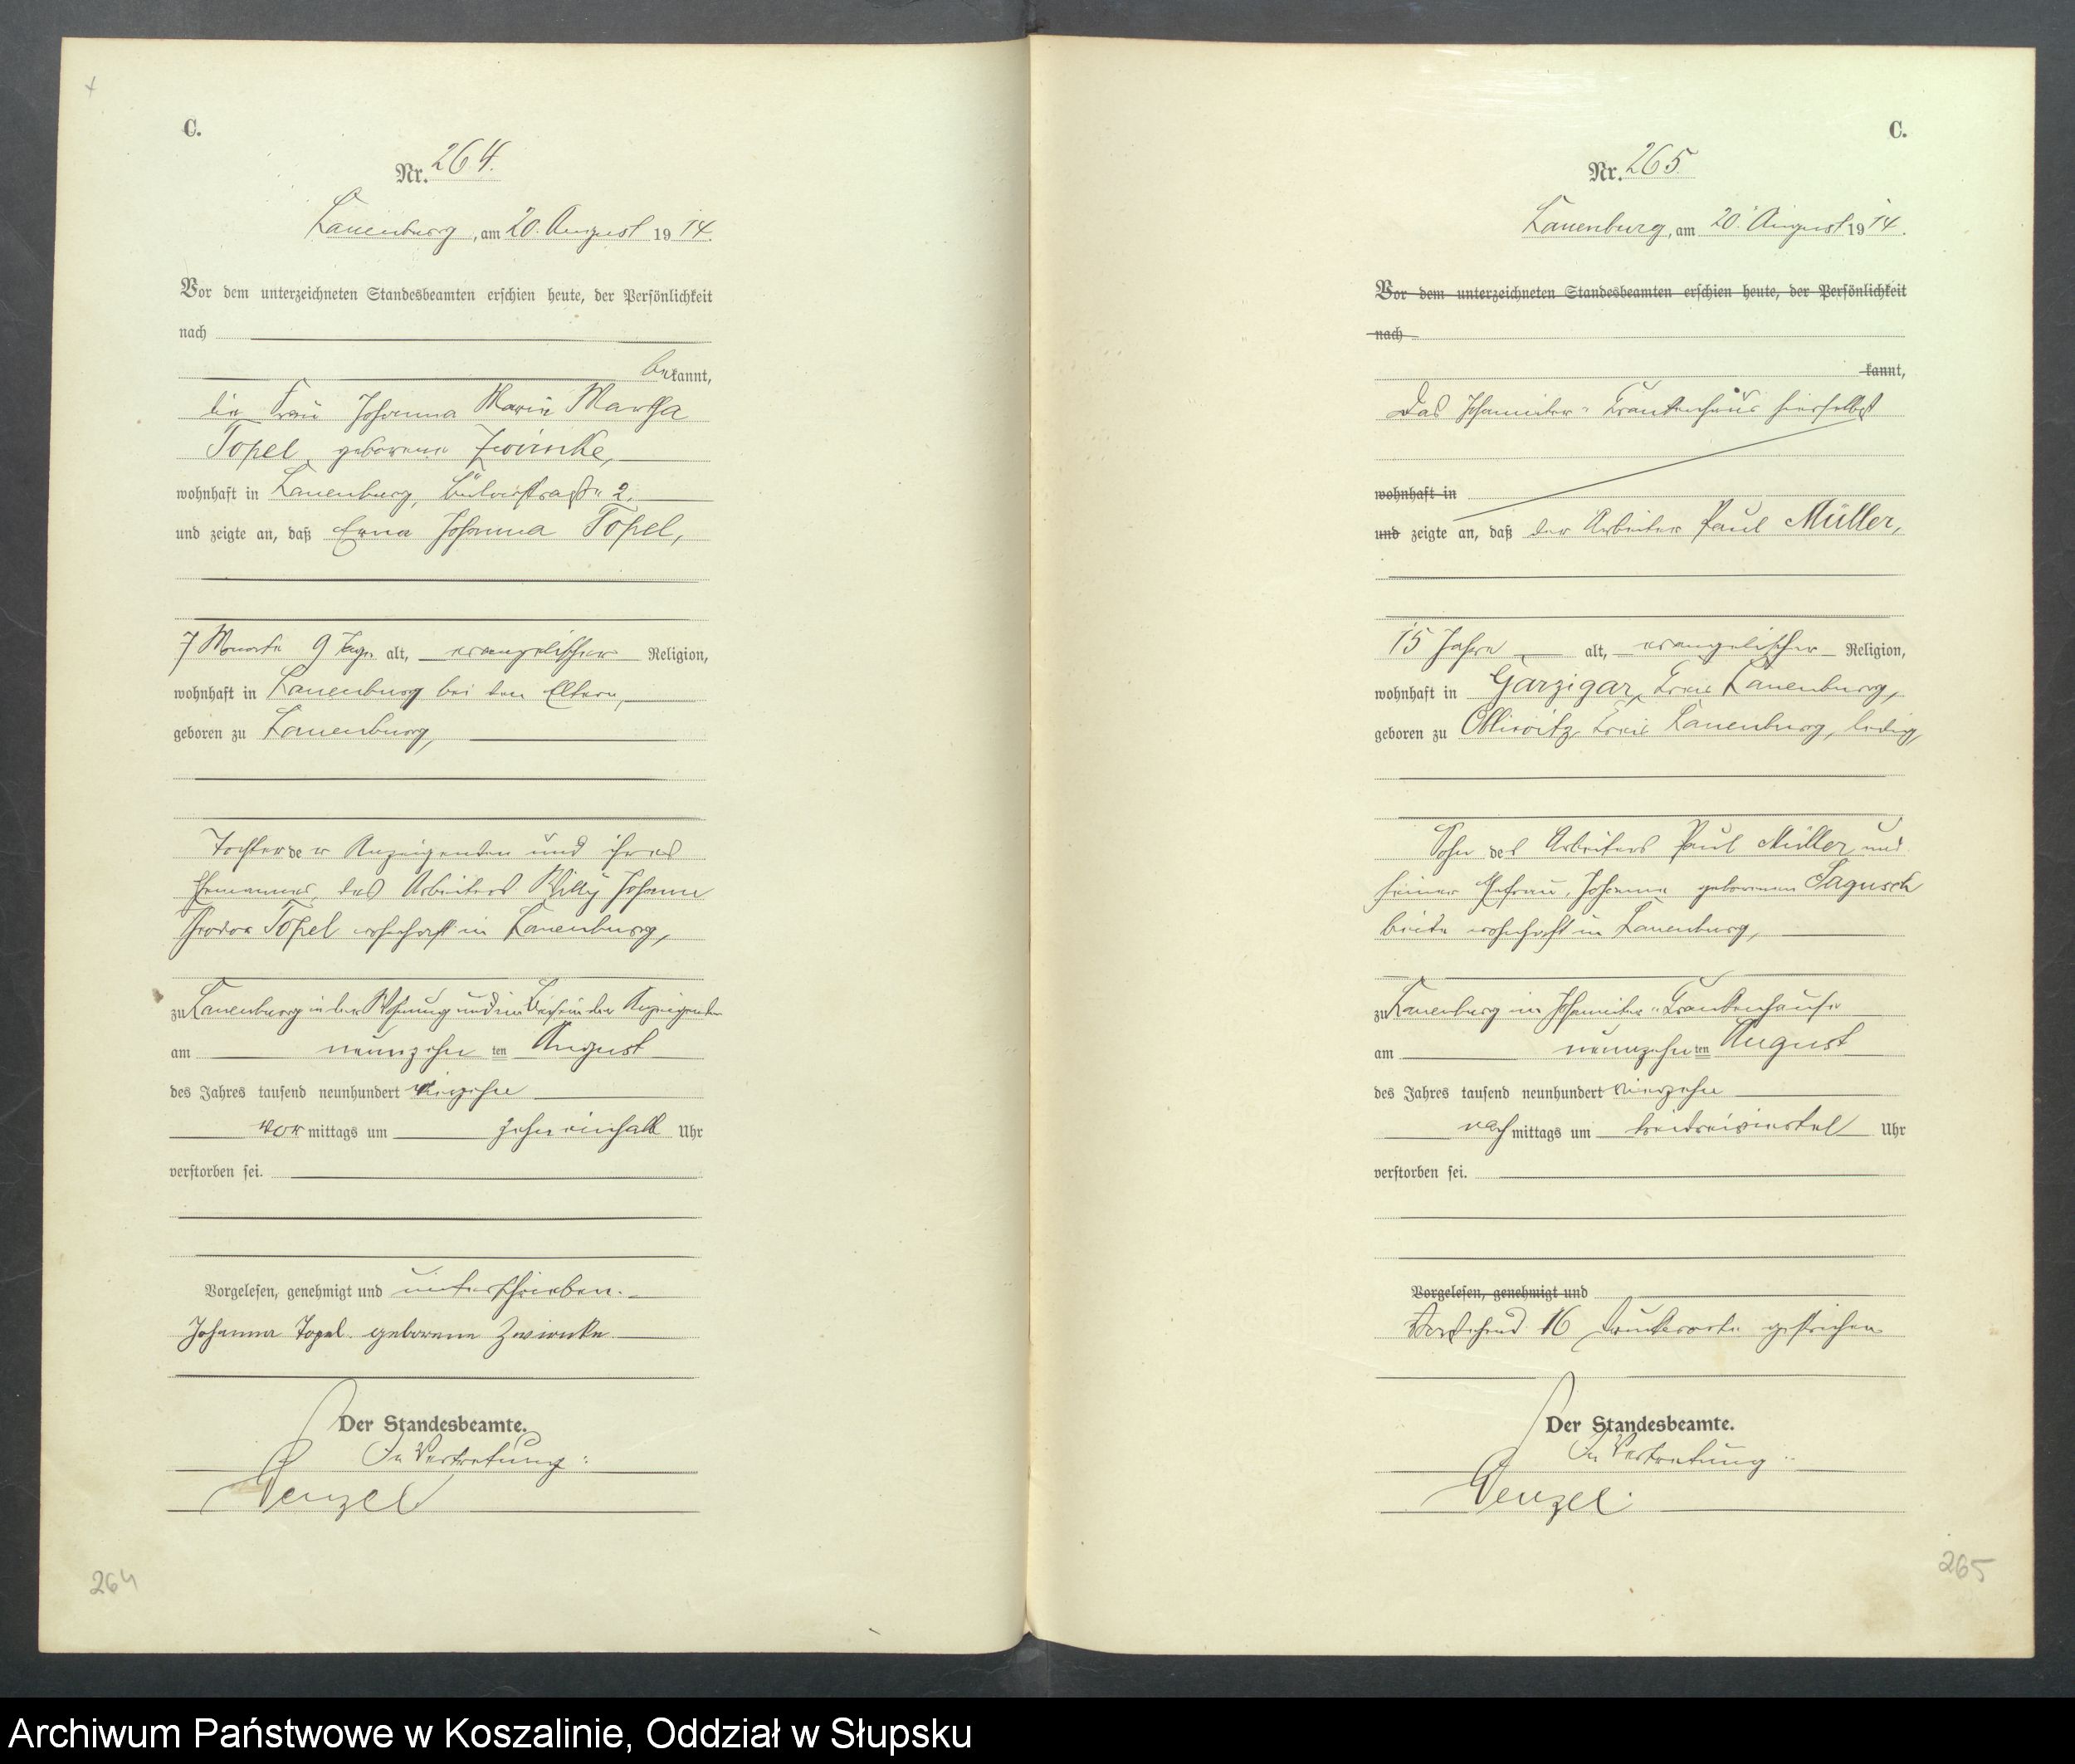 C.
Nr. 264.
Lauenburg, am 20. August 1914.
Vor dem unterzeichneten Standesbeamten erschien heute, der Persönlichkeit
nach
bekannt,
die Frau Johanna Marie Martha
Topel geborene Zwirnke,
wohnhaft in Lauenburg, Bülowstraße 2.
und zeigte an, daß Erna Johanna Topel,
7 Monate 9 Tage alt, evangelischer Religion,
wohnhaft in Lauenburg bei den Eltern,
geboren zu Lauenburg,
Tochter der Anzeigenden und ihres
Ehemannes, des Arbeiters Willy Johann
Topel wohnhaft in Lauenburg,
zu Lauenburg in der Wohnung und im Beisein der Anzeigenden
am neunzehnten August
des Jahres tausend neunhundert vierzehn
vormittags um zehn einhalb Uhr
verstorben sei.
Vorgelesen, genehmigt und unterschrieben.
Johanna Topel geborene Zwirnke
Der Standesbeamte.
In Vertretung:
Wenzel
264
C.
Nr. 265
Lauenburg, am 20. August 1914.
Vor dem unterzeichneten Standesbeamten erschien heute, der Persönlichkeit
nach
kannt,
Das Johanniter-Krankenhaus hierselbst
wohnhaft in
und zeigte an, daß der Arbeiter Paul Müller,
15 Jahre alt, evangelischer Religion,
wohnhaft in Garzigar, Kreis Lauenburg,
geboren zu Obliwitz Kreis Lauenburg, ledig,
Sohn des Arbeiters Paul Müller und
seiner Ehefrau, Johanna geborenen Sagusch
beide wohnhaft in Lauenburg,
zu Lauenburg im Johanniter-Krankenhause
am neunzehnten August
des Jahres tausend neunhundert vierzehn
nachmittags um dreidreiviertel Uhr
verstorben sei.
Vorgelesen, genehmigt und
Vorstehend 16 Druckworte gestrichen
Der Standesbeamte.
In Vertretung:
Wenzel.
265
Archiwum Państwowe w Koszalinie, Oddział w Słupsku